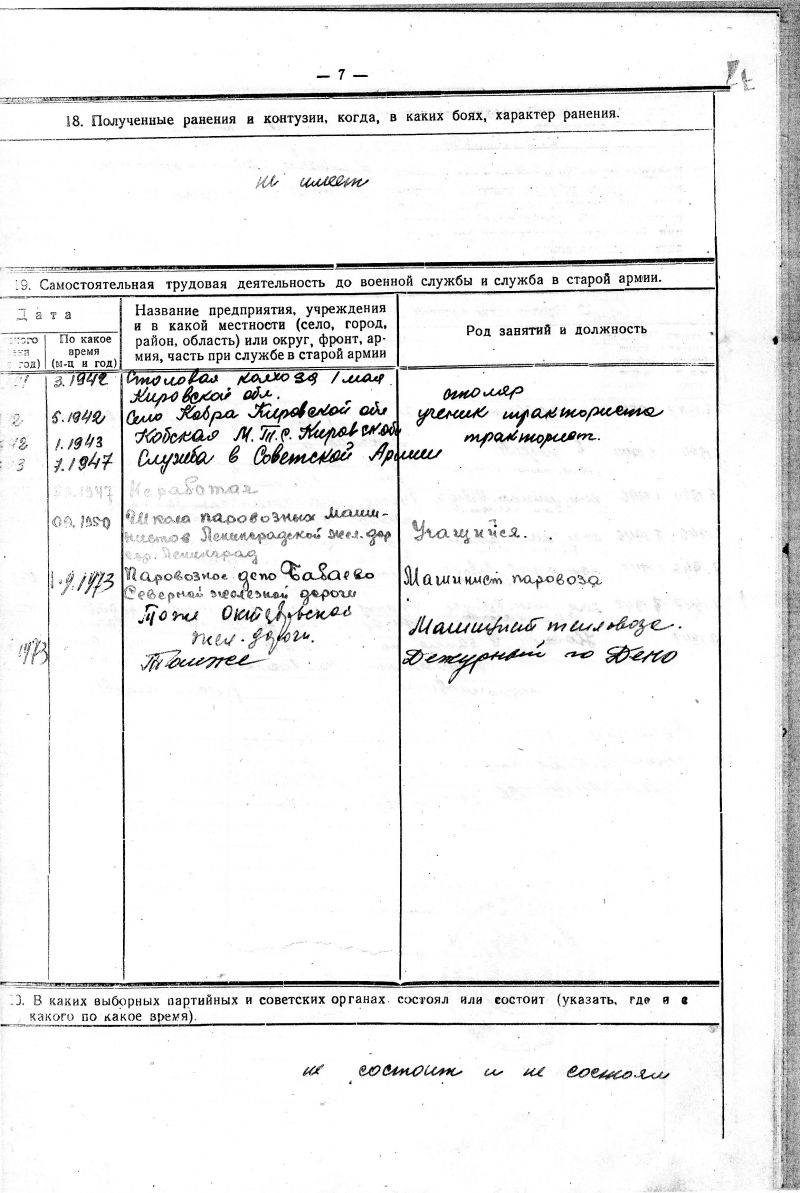 — 7 —
18. Полученные ранения и контузии, когда, в каких боях, характер ранения.
не имеет
9. Самостоятельная трудовая деятельность до военной службы и служба в старой армии.
Дата
Название предприятия, учреждения
и в какой местности (село, город,
район, область) или округ, фронт, ар-
мия, часть при службе в старой армии
Род занятий и должность
По какое
время
(м-ц и год)
год)
3.1942 Столовая колхоза 1 мая
Кировской обл. столяр
2 5.1942 Село Кобра Кировской обл ученик тракториста
12 1.1943 Кобская М.Т.С. Кировск обл тракторист.
3 7.1947 Служба в Советской Армии
1947 Не работал
09.1950 Школа паровозных маши-
нистов Ленинградской жел. дор Учащийся.
гор. Ленинград
9.1973 Паровозное депо Бабаево Машинист паровоза
Северной железной дороги
Тоже Октябрьской
жел. дороги. Машинист тепловоза.
1973 Тамже Дежурный по Депо
0. В каких выборных партийных и советских органах состоял или состоит (указать, где и с
какого по какое время).
не состоит и не состоял